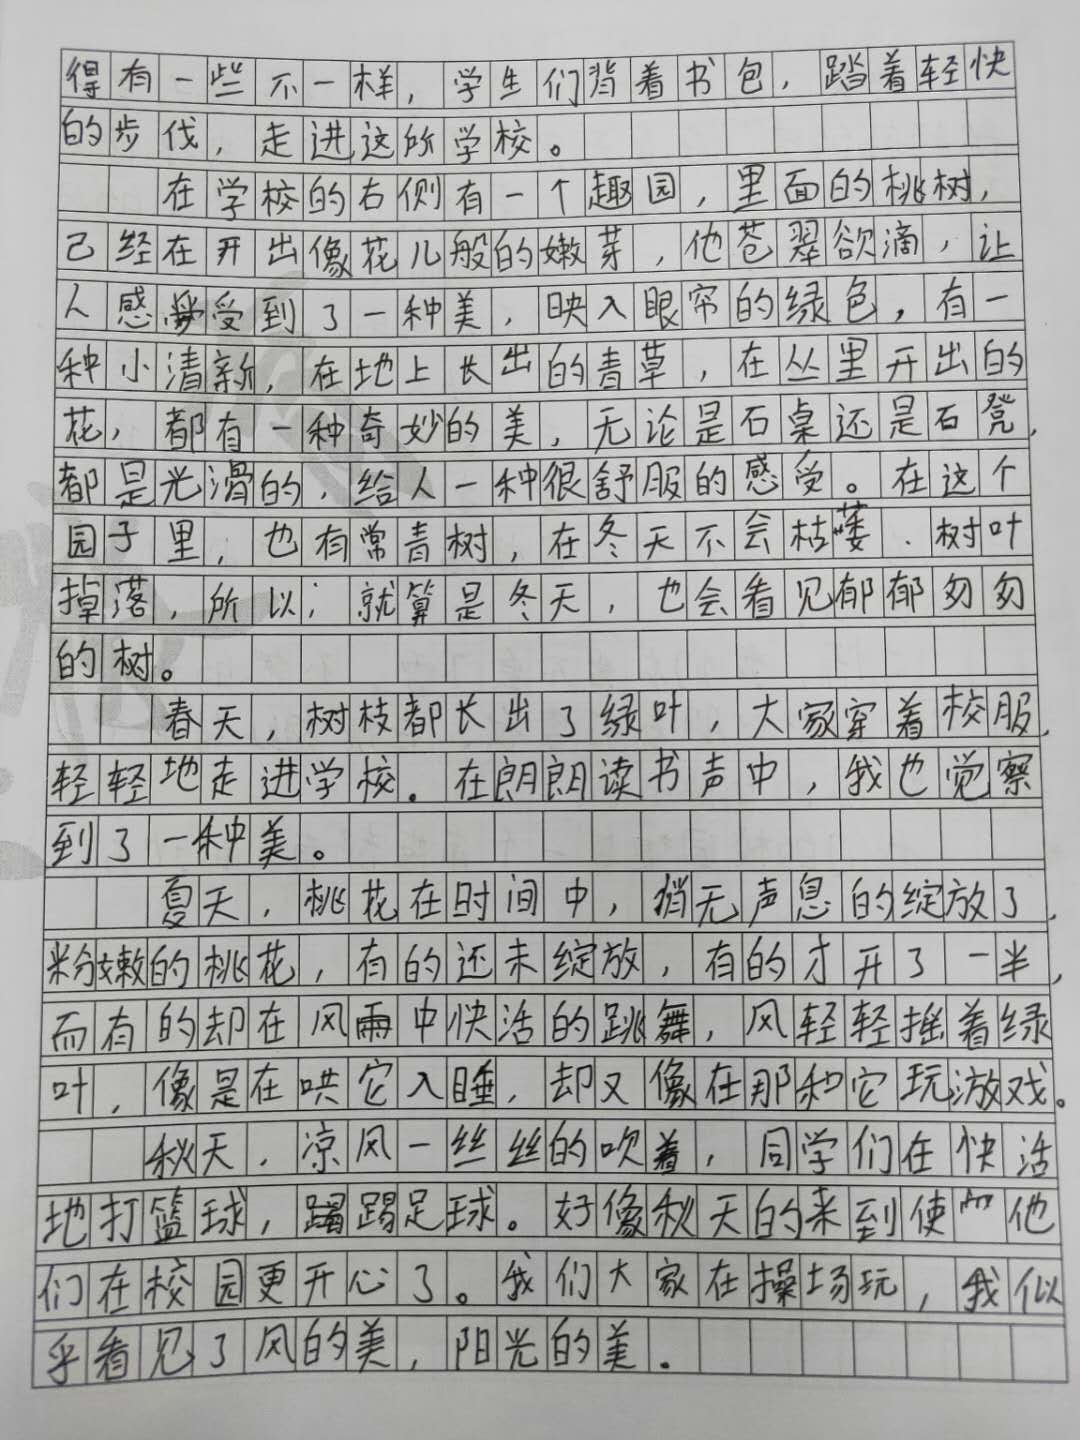 得有一些不一样，学生们背着书包，踏着轻快
的步伐，走进这所学校。
在学校的右侧有一个趣园，里面的桃树，
已经在开出像花儿般的嫩芽，他苍翠欲滴，让
人感受到了一种美，映入眼帘的绿色，有一
种小清新，在地上长出的青草，在丛里开出的
花，都有一种奇妙的美，无论是石桌还是石凳，
都是光滑的，给人一种很舒服的感受。在这个
园子里，也有常青树，在冬天不会枯萎、树叶
掉落，所以；就算是冬天，也会看见郁郁匆匆
的树。
春天，树枝都长出了绿叶，大家穿着校服，
轻轻地走进学校。在朗朗读书声中，我也觉察
到了一种美。
夏天，桃花在时间中，悄无声息的绽放了，
粉嫩的桃花，有的还未绽放，有的才开了一半，
而有的却在风雨中快活的跳舞，风轻轻摇着绿
叶，像是在哄它入睡，却又像在那和它玩游戏。
秋天，凉风一丝丝的吹着，同学们在快活
地打篮球，踢踢足球。好像秋天的来到使他
们在校园更开心了。我们大家在操场玩，我似
乎看见了风的美，阳光的美。